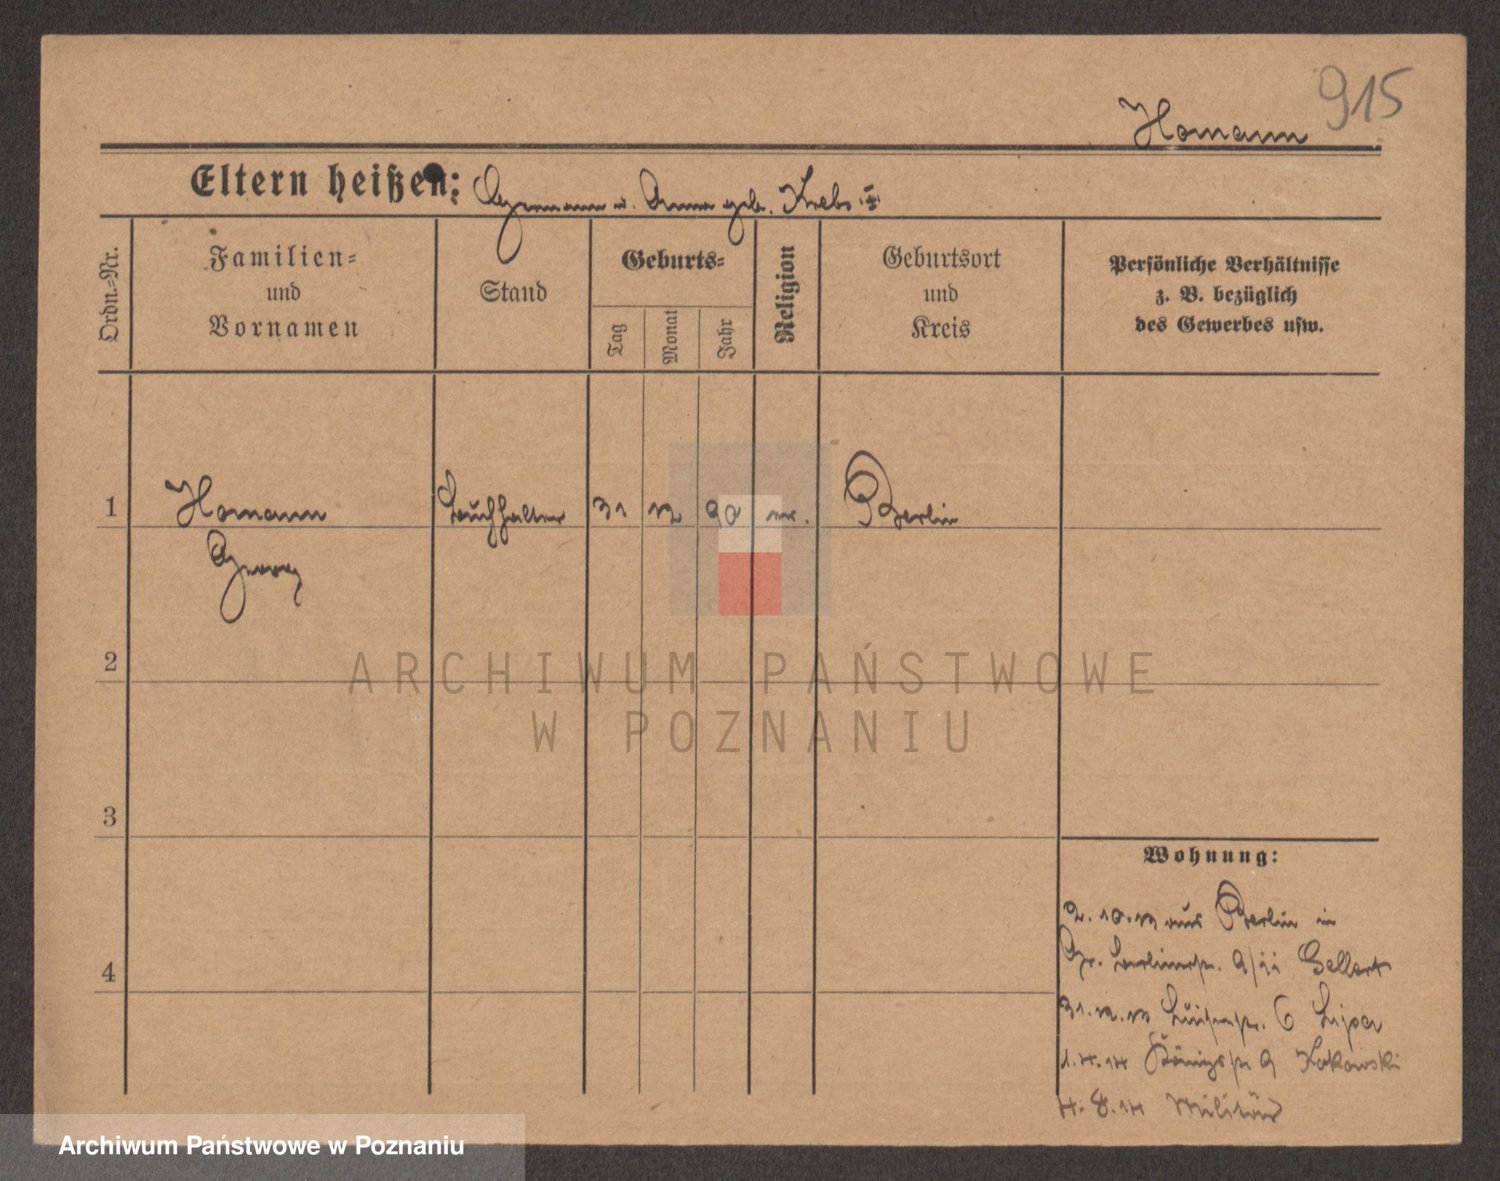 915
Homann
Eltern heißen: Hermann u. Anna geb. Krebs
Ordn.-Nr.
Familien-
und
Vornamen
Stand
Geburts-
Tag
Monat
Jahr
Religion
Geburtsort
und
Kreis
Persönliche Verhältnisse
z. B. bezüglich
des Gewerbes usw.
1 Homann Buchhalter 31 12 90 ev. Berlin
Georg
2
3
4
Wohnung:
2.10.13 aus Berlin in
Gr. Berlinerstr. Gellert
31.12.13 Luisenstr. 6
1.4.14 Königstr 9 Kakowski
4.8.14 Militär
ARCHIWUM PAŃSTWOWE
W POZNANIU
Archiwum Państwowe w Poznaniu